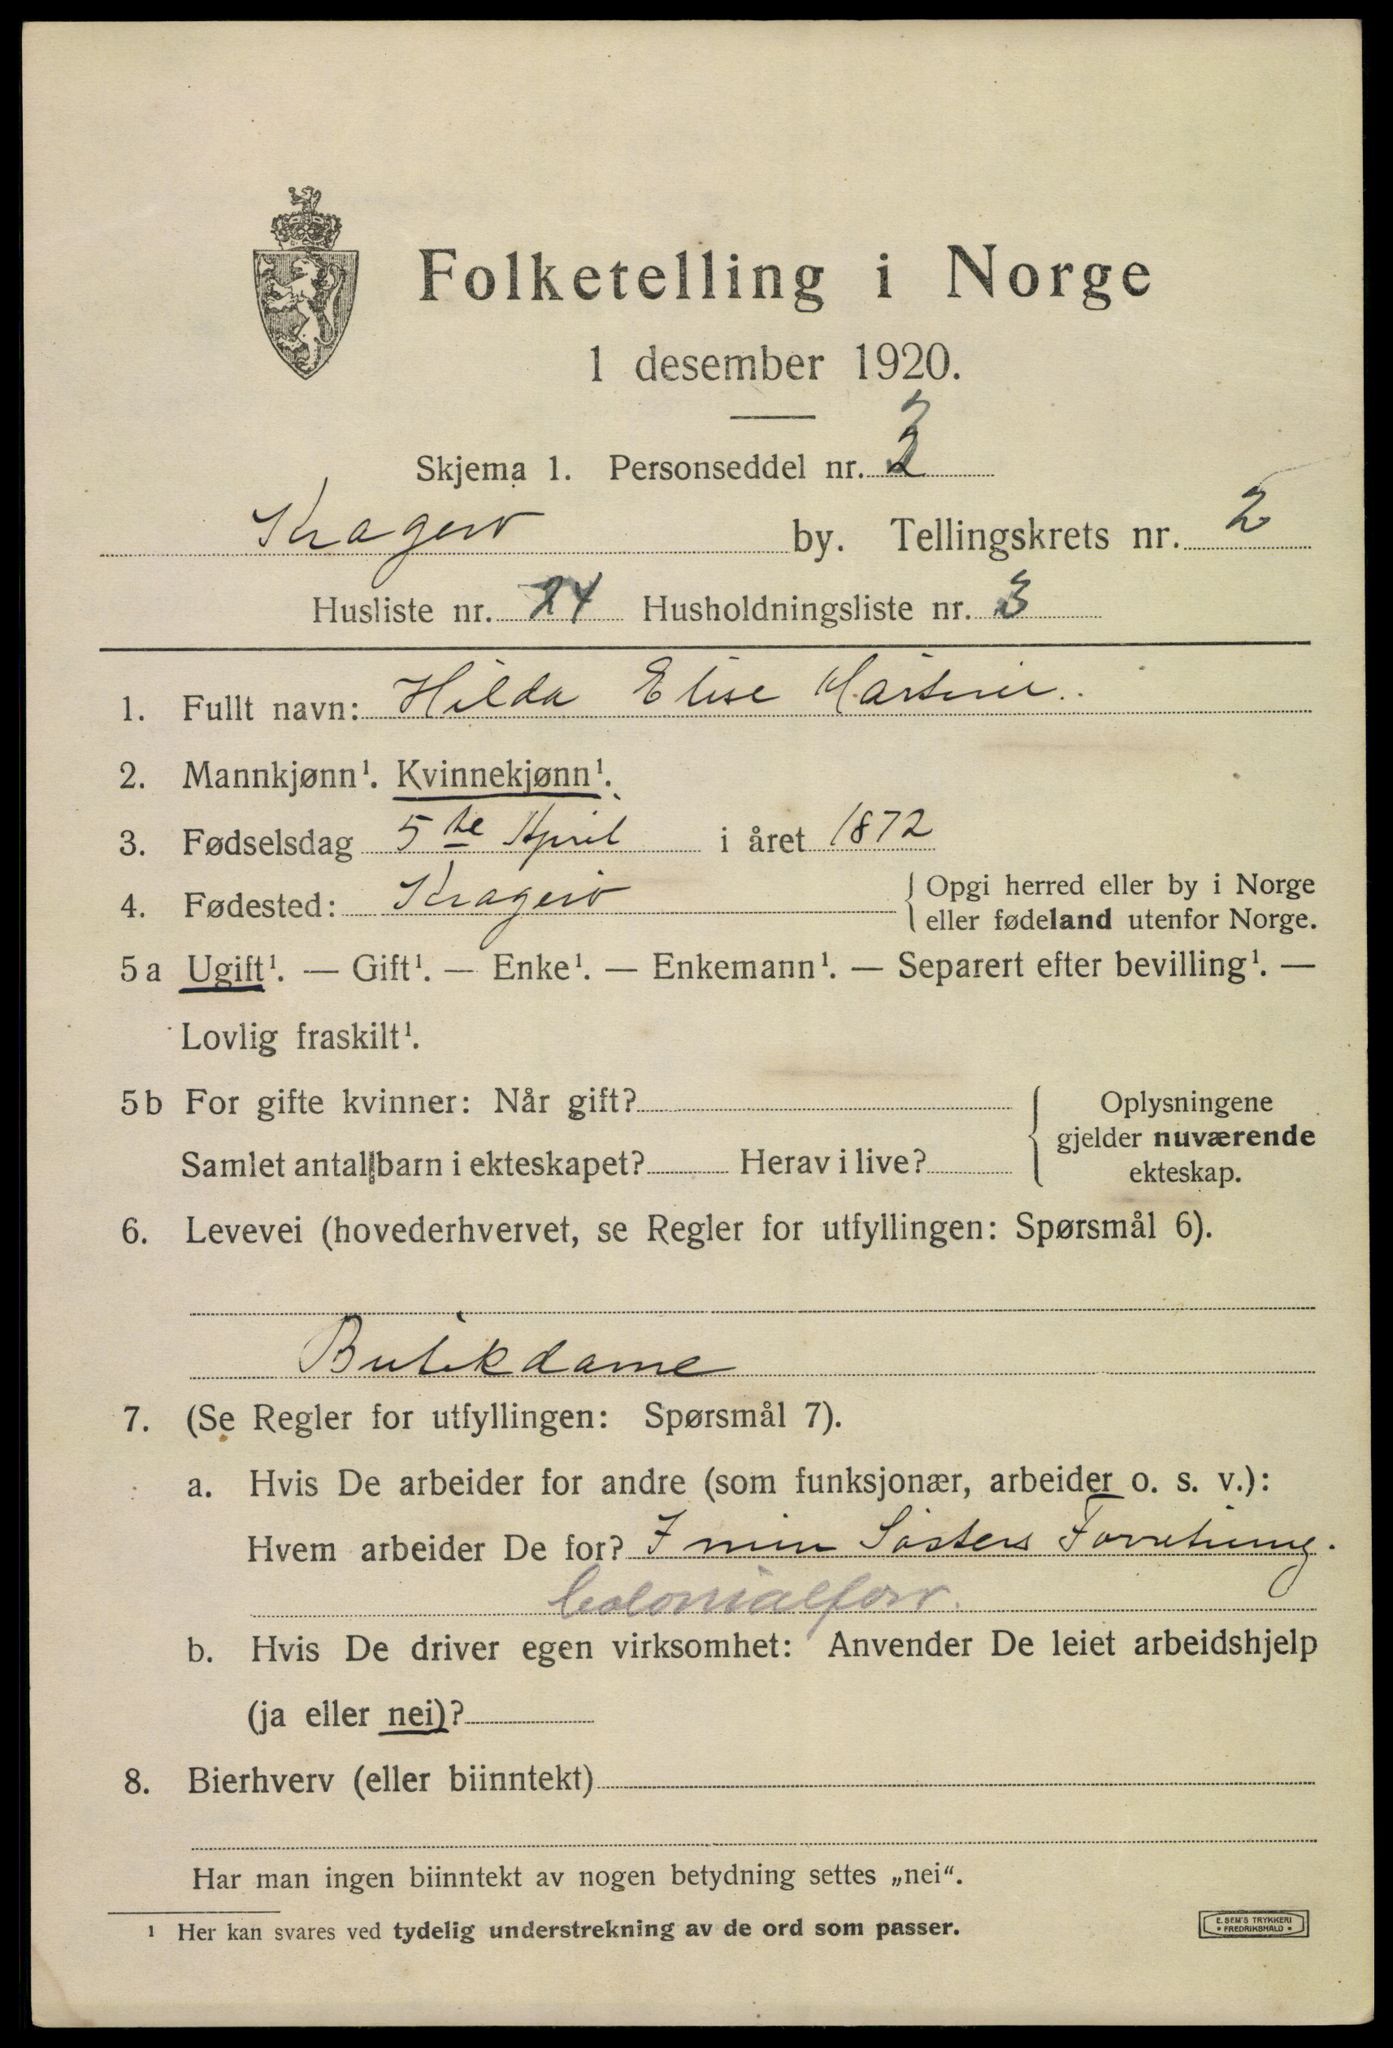 Folketelling i Norge
1 desember 1920.
Skjema 1. Personseddel nr. 2
Kragerø by. Tellingskrets nr. 2
Husliste nr. 24 Husholdningsliste nr. 3
1. Fullt navn: Hilda Elise
2. Mannkjønn¹. Kvinnekjønn¹.
3. Fødselsdag 5te April i året 1872
4. Fødested: Kragerø { Opgi herred eller by i Norge
eller fødeland utenfor Norge.
5a Ugift¹. — Gift¹. — Enke¹. — Enkemann¹. — Separert efter bevilling¹. —
Lovlig fraskilt¹.
5b For gifte kvinner: Når gift? { Oplysningene
gjelder nuværende
Samlet antal barn i ekteskapet? Herav i live?
ekteskap.
6. Levevei (hovederhvervet, se Regler for utfyllingen: Spørsmål 6).
Butikdame
7. (Se Regler for utfyllingen: Spørsmål 7).
a. Hvis De arbeider for andre (som funksjonær, arbeider o. s. v.):
Hvem arbeider De for? I min Søsters Forretning.
Colonialforr.
b. Hvis De driver egen virksomhet: Anvender De leiet arbeidshjelp
(ja eller nei)?
8. Bierhverv (eller biinntekt)
Har man ingen biinntekt av nogen betydning settes „nei“.
¹ Her kan svares ved tydelig understrekning av de ord som passer.
E. SEM'S TRYKKERI
• FREDRIKSHALD •